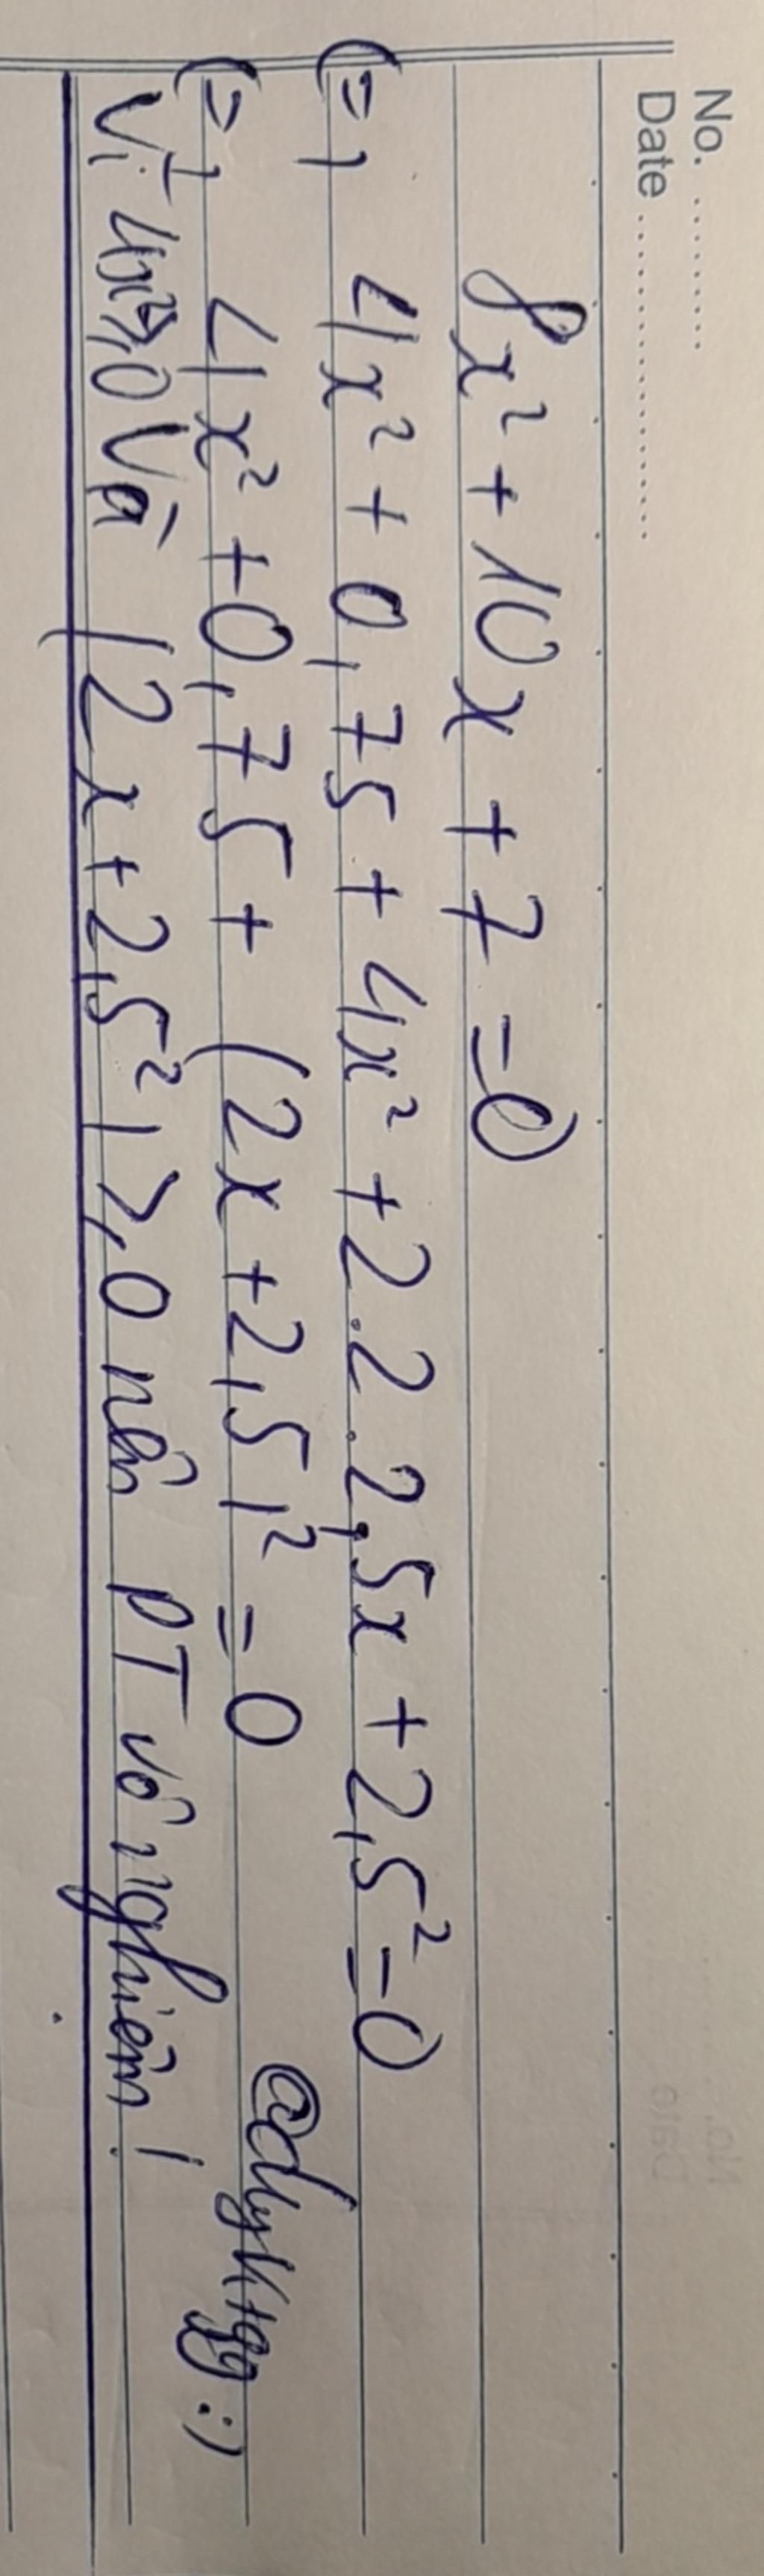 No. ..........
Date ..........................
8x² + 10x + 7 = 0
(=) 4x² + 0,75 + 4x² + 2.2.2,5x + 2,5² = 0
(=) 4x² + 0,75 + (2x + 2,5)² = 0
@dyk+gg :)
Vì 4x² ≥ 0 Và (2x + 2,5²) ≥ 0 nên PT vô nghiệm!